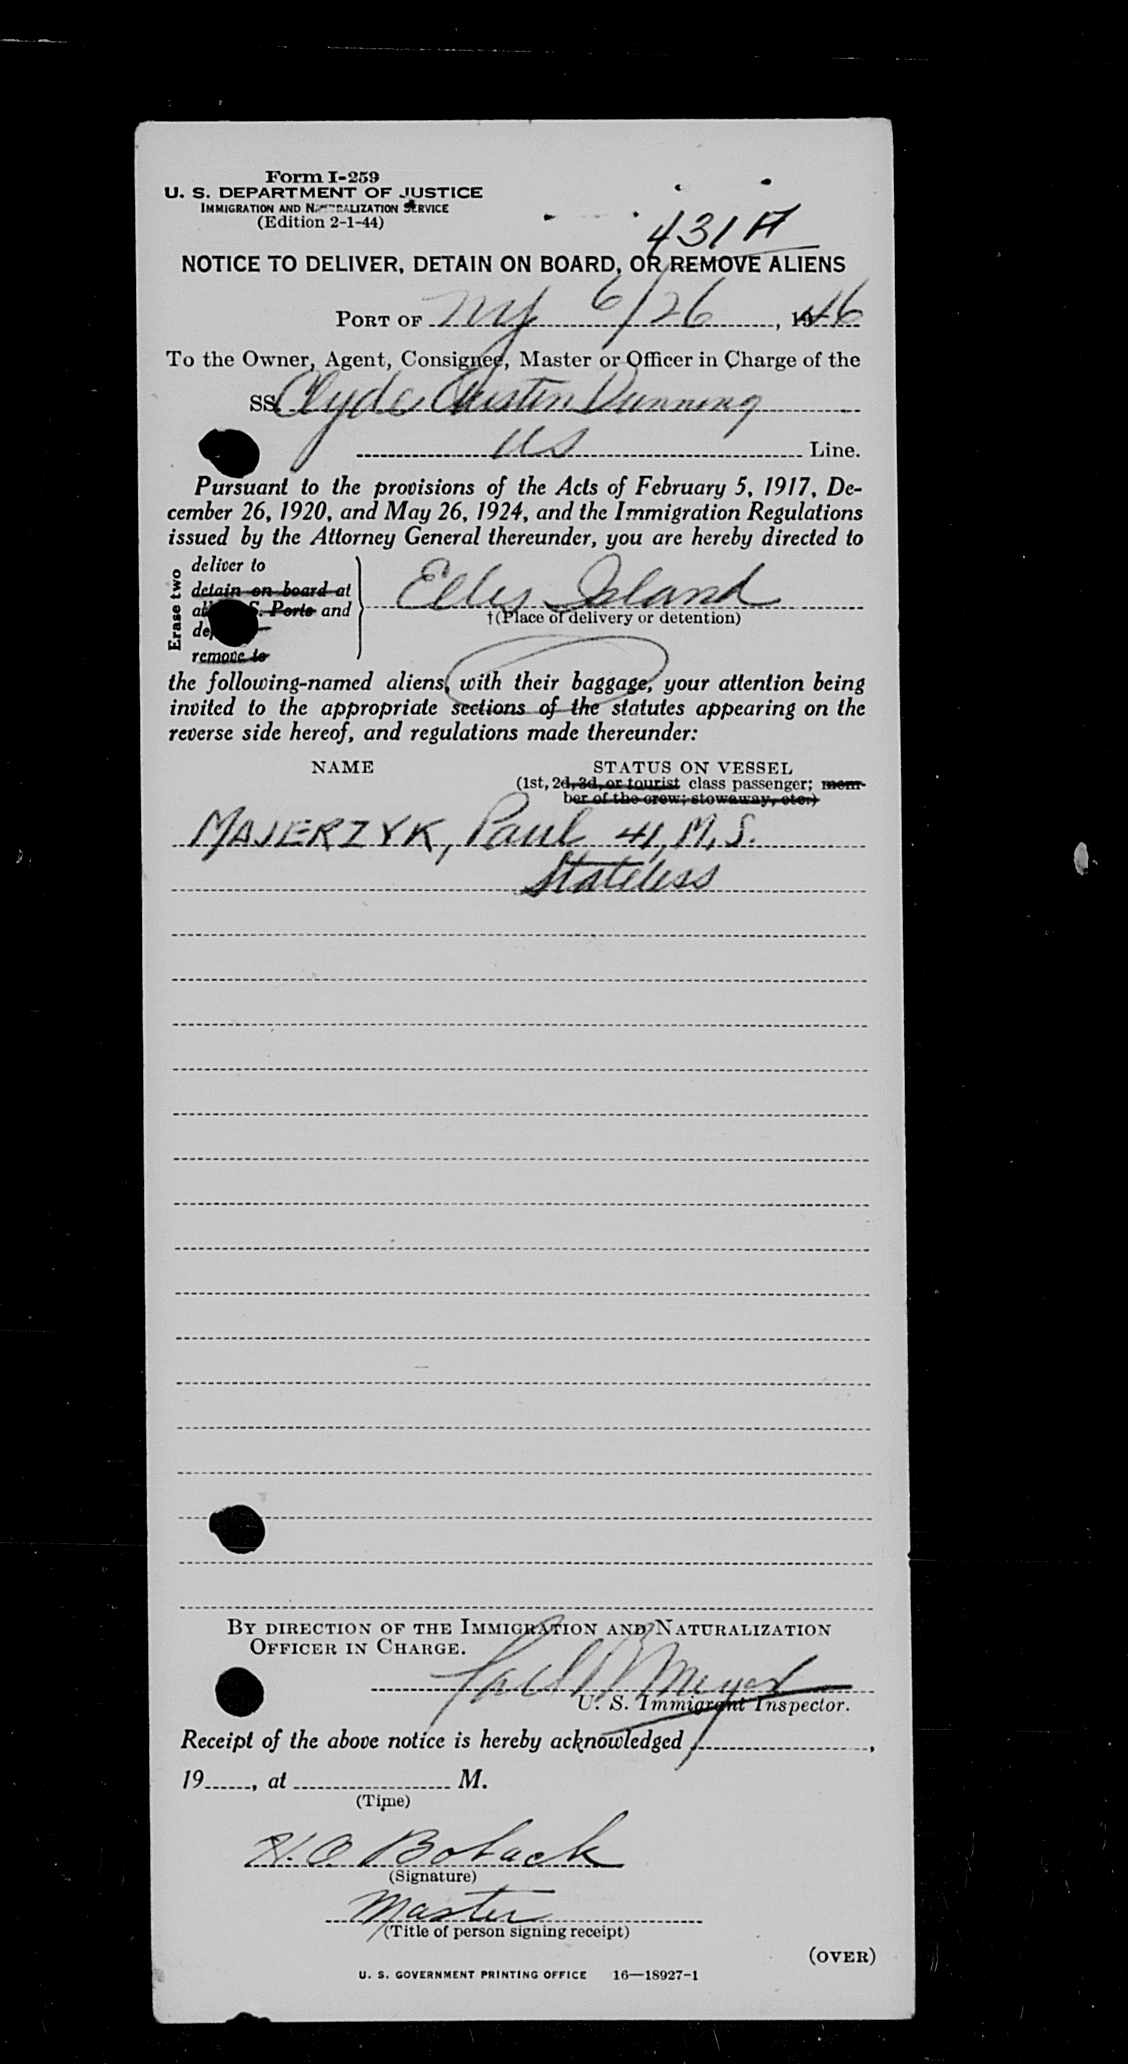 Form I-259
U. S. DEPARTMENT OF JUSTICE
IMMIGRATION AND NATURALIZATION SERVICE
(Edition 2-1-44)
431 A
NOTICE TO DELIVER, DETAIN ON BOARD, OR REMOVE ALIENS
PORT OF NY 6/26, 1946
To the Owner, Agent, Consignee, Master or Officer in Charge of the
SS Clyde Austin Dunning
US Line.
Pursuant to the provisions of the Acts of February 5, 1917, De-
cember 26, 1920, and May 26, 1924, and the Immigration Regulations
issued by the Attorney General thereunder, you are hereby directed to
Erase two
deliver to
detain on board at
S. Ports and
remove to
Ellis Island
†(Place of delivery or detention)
the following-named aliens, with their baggage, your attention being
invited to the appropriate sections of the statutes appearing on the
reverse side hereof, and regulations made thereunder:
NAME STATUS ON VESSEL
(1st, 2d, 3d, or tourist class passenger; mem-
ber of the crew; stowaway, etc.)
MAJERZYK, Paul 41, M, S.
Stateless
BY DIRECTION OF THE IMMIGRATION AND NATURALIZATION
OFFICER IN CHARGE.
U. S. Immigrant Inspector.
Receipt of the above notice is hereby acknowledged ,
19, at M.
(Time)
(Signature)
Master
(Title of person signing receipt)
(OVER)
U. S. GOVERNMENT PRINTING OFFICE 16—18927-1